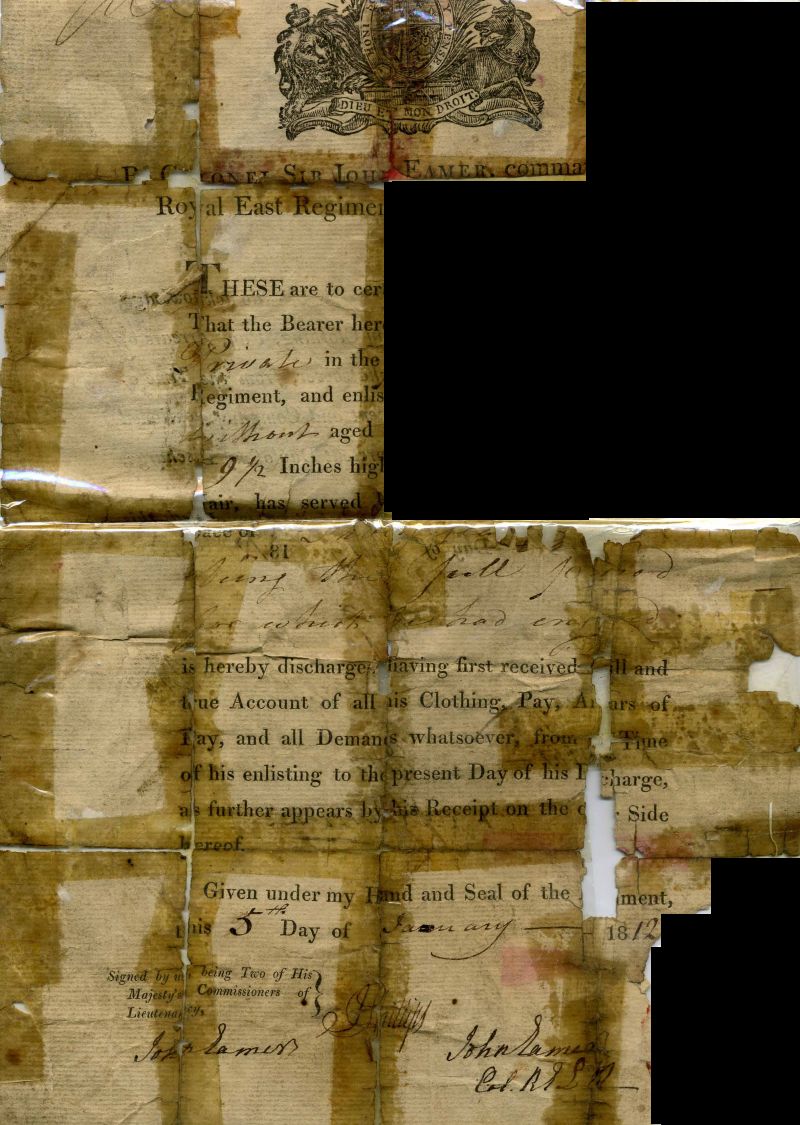 DIEU ET MON DROIT
COLONEL SIR JOHN EAMER, comma
Royal East Regimen
THESE are to cer
That the Bearer here
Private in the
Regiment, and enlis
without aged
9 1/2 Inches high
air, has served
ace of
18
being the full period
for which he had engaged
is hereby discharged having first received full and
true Account of all his Clothing, Pay, Arrears of
Pay, and all Demands whatsoever, from Time
of his enlisting to the present Day of his Discharge,
as further appears by his Receipt on the Side
hereof.
Given under my Hand and Seal of the ment,
this 5th Day of January 1812
Signed by us being Two of His
Majesty's Commissioners of
Lieutenancy,
JPhillips
John Eamer
John Eamer
Col. R E L M